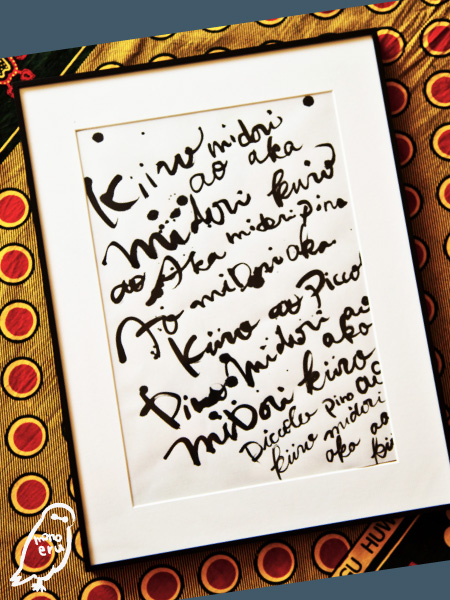 Kiiro midori
ao aka
midori kuro
ao Aka midori pino
Ao midori aka
Kiiro ao Piccolo
Pino midori ao
aka
midori kiiro
Piccolo pino ao
kiiro midori
aka ao
kii
HUW
nano
eru